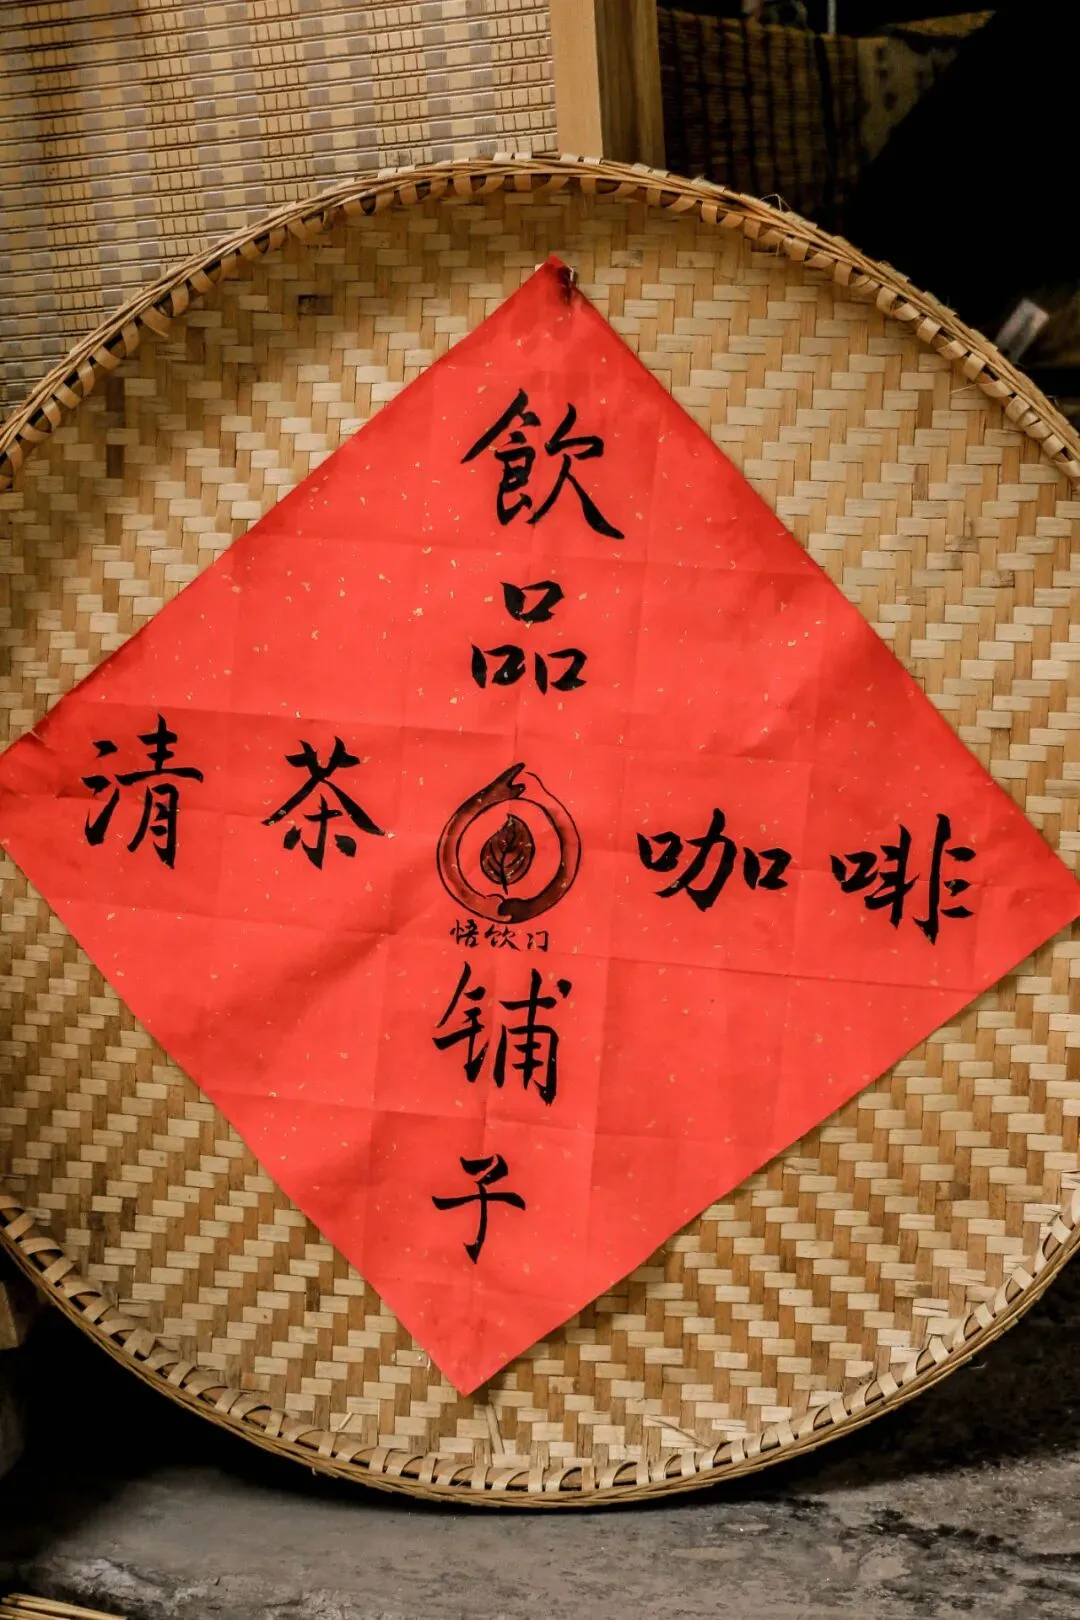 飲品
清茶 咖啡
悟饮门
铺子